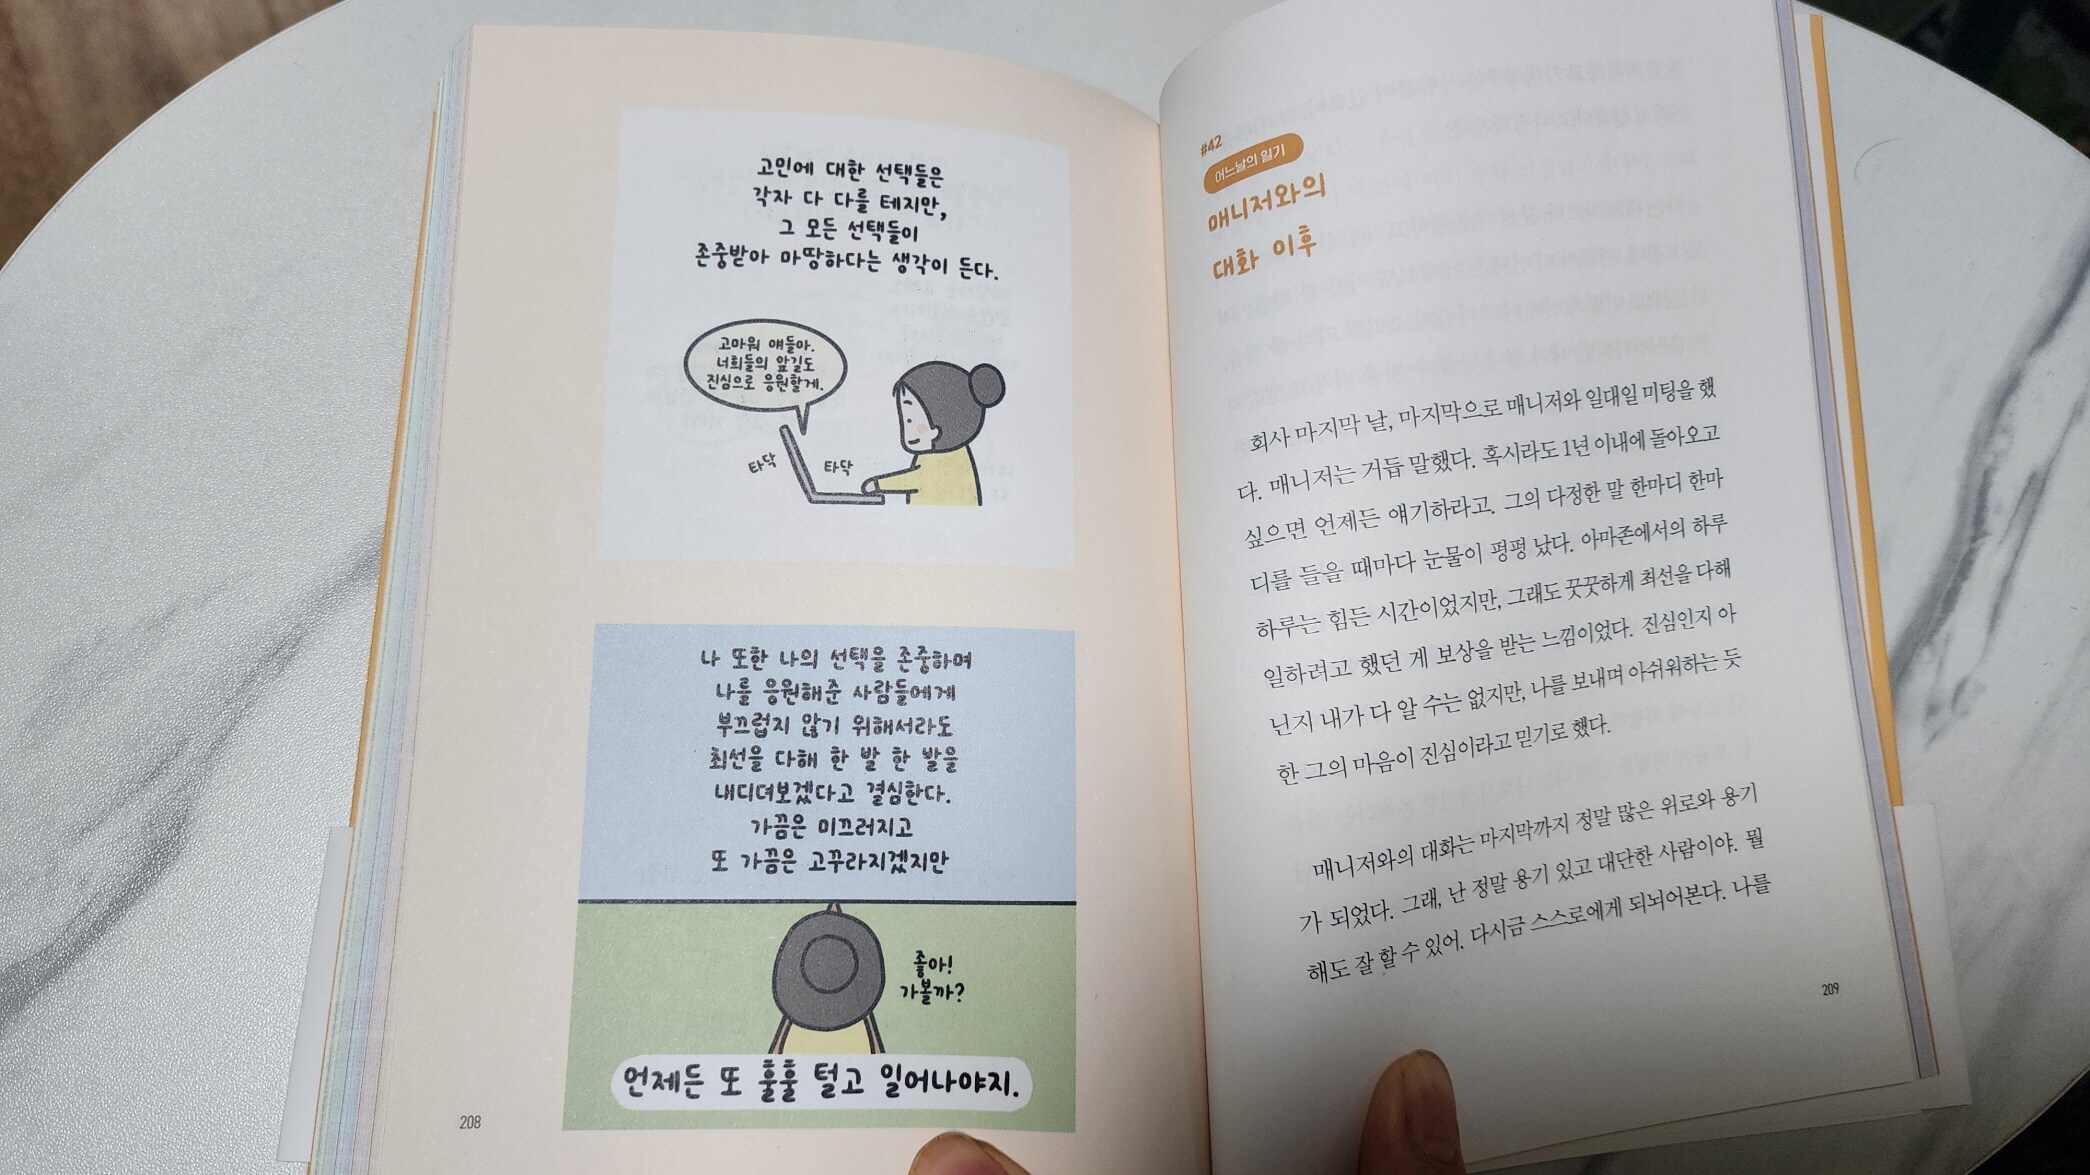 고민에 대한 선택들은
각자 다 다를 테지만,
그 모든 선택들이
존중받아 마땅하다는 생각이 든다.
고마워 얘들아.
너희들의 앞길도
진심으로 응원할게.
타닥
타닥
나 또한 나의 선택을 존중하며
나를 응원해준 사람들에게
부끄럽지 않기 위해서라도
최선을 다해 한 발 한 발을
내디뎌보겠다고 결심한다.
가끔은 미끄러지고
또 가끔은 고꾸라지겠지만
좋아!
가볼까?
언제든 또 훌훌 털고 일어나야지.
208
#42
어느날의 일기
매니저와의
대화 이후
회사 마지막 날, 마지막으로 매니저와 일대일 미팅을 했
다. 매니저는 거듭 말했다. 혹시라도 1년 이내에 돌아오고
싶으면 언제든 얘기하라고. 그의 다정한 말 한마디 한마
디를 들을 때마다 눈물이 펑펑 났다. 아마존에서의 하루
하루는 힘든 시간이었지만, 그래도 꿋꿋하게 최선을 다해
일하려고 했던 게 보상을 받는 느낌이었다. 진심인지 아
닌지 내가 다 알 수는 없지만, 나를 보내며 아쉬워하는 듯
한 그의 마음이 진심이라고 믿기로 했다.
매니저와의 대화는 마지막까지 정말 많은 위로와 용기
가 되었다. 그래, 난 정말 용기 있고 대단한 사람이야. 뭘
해도 잘 할 수 있어. 다시금 스스로에게 되뇌어본다. 나를
209